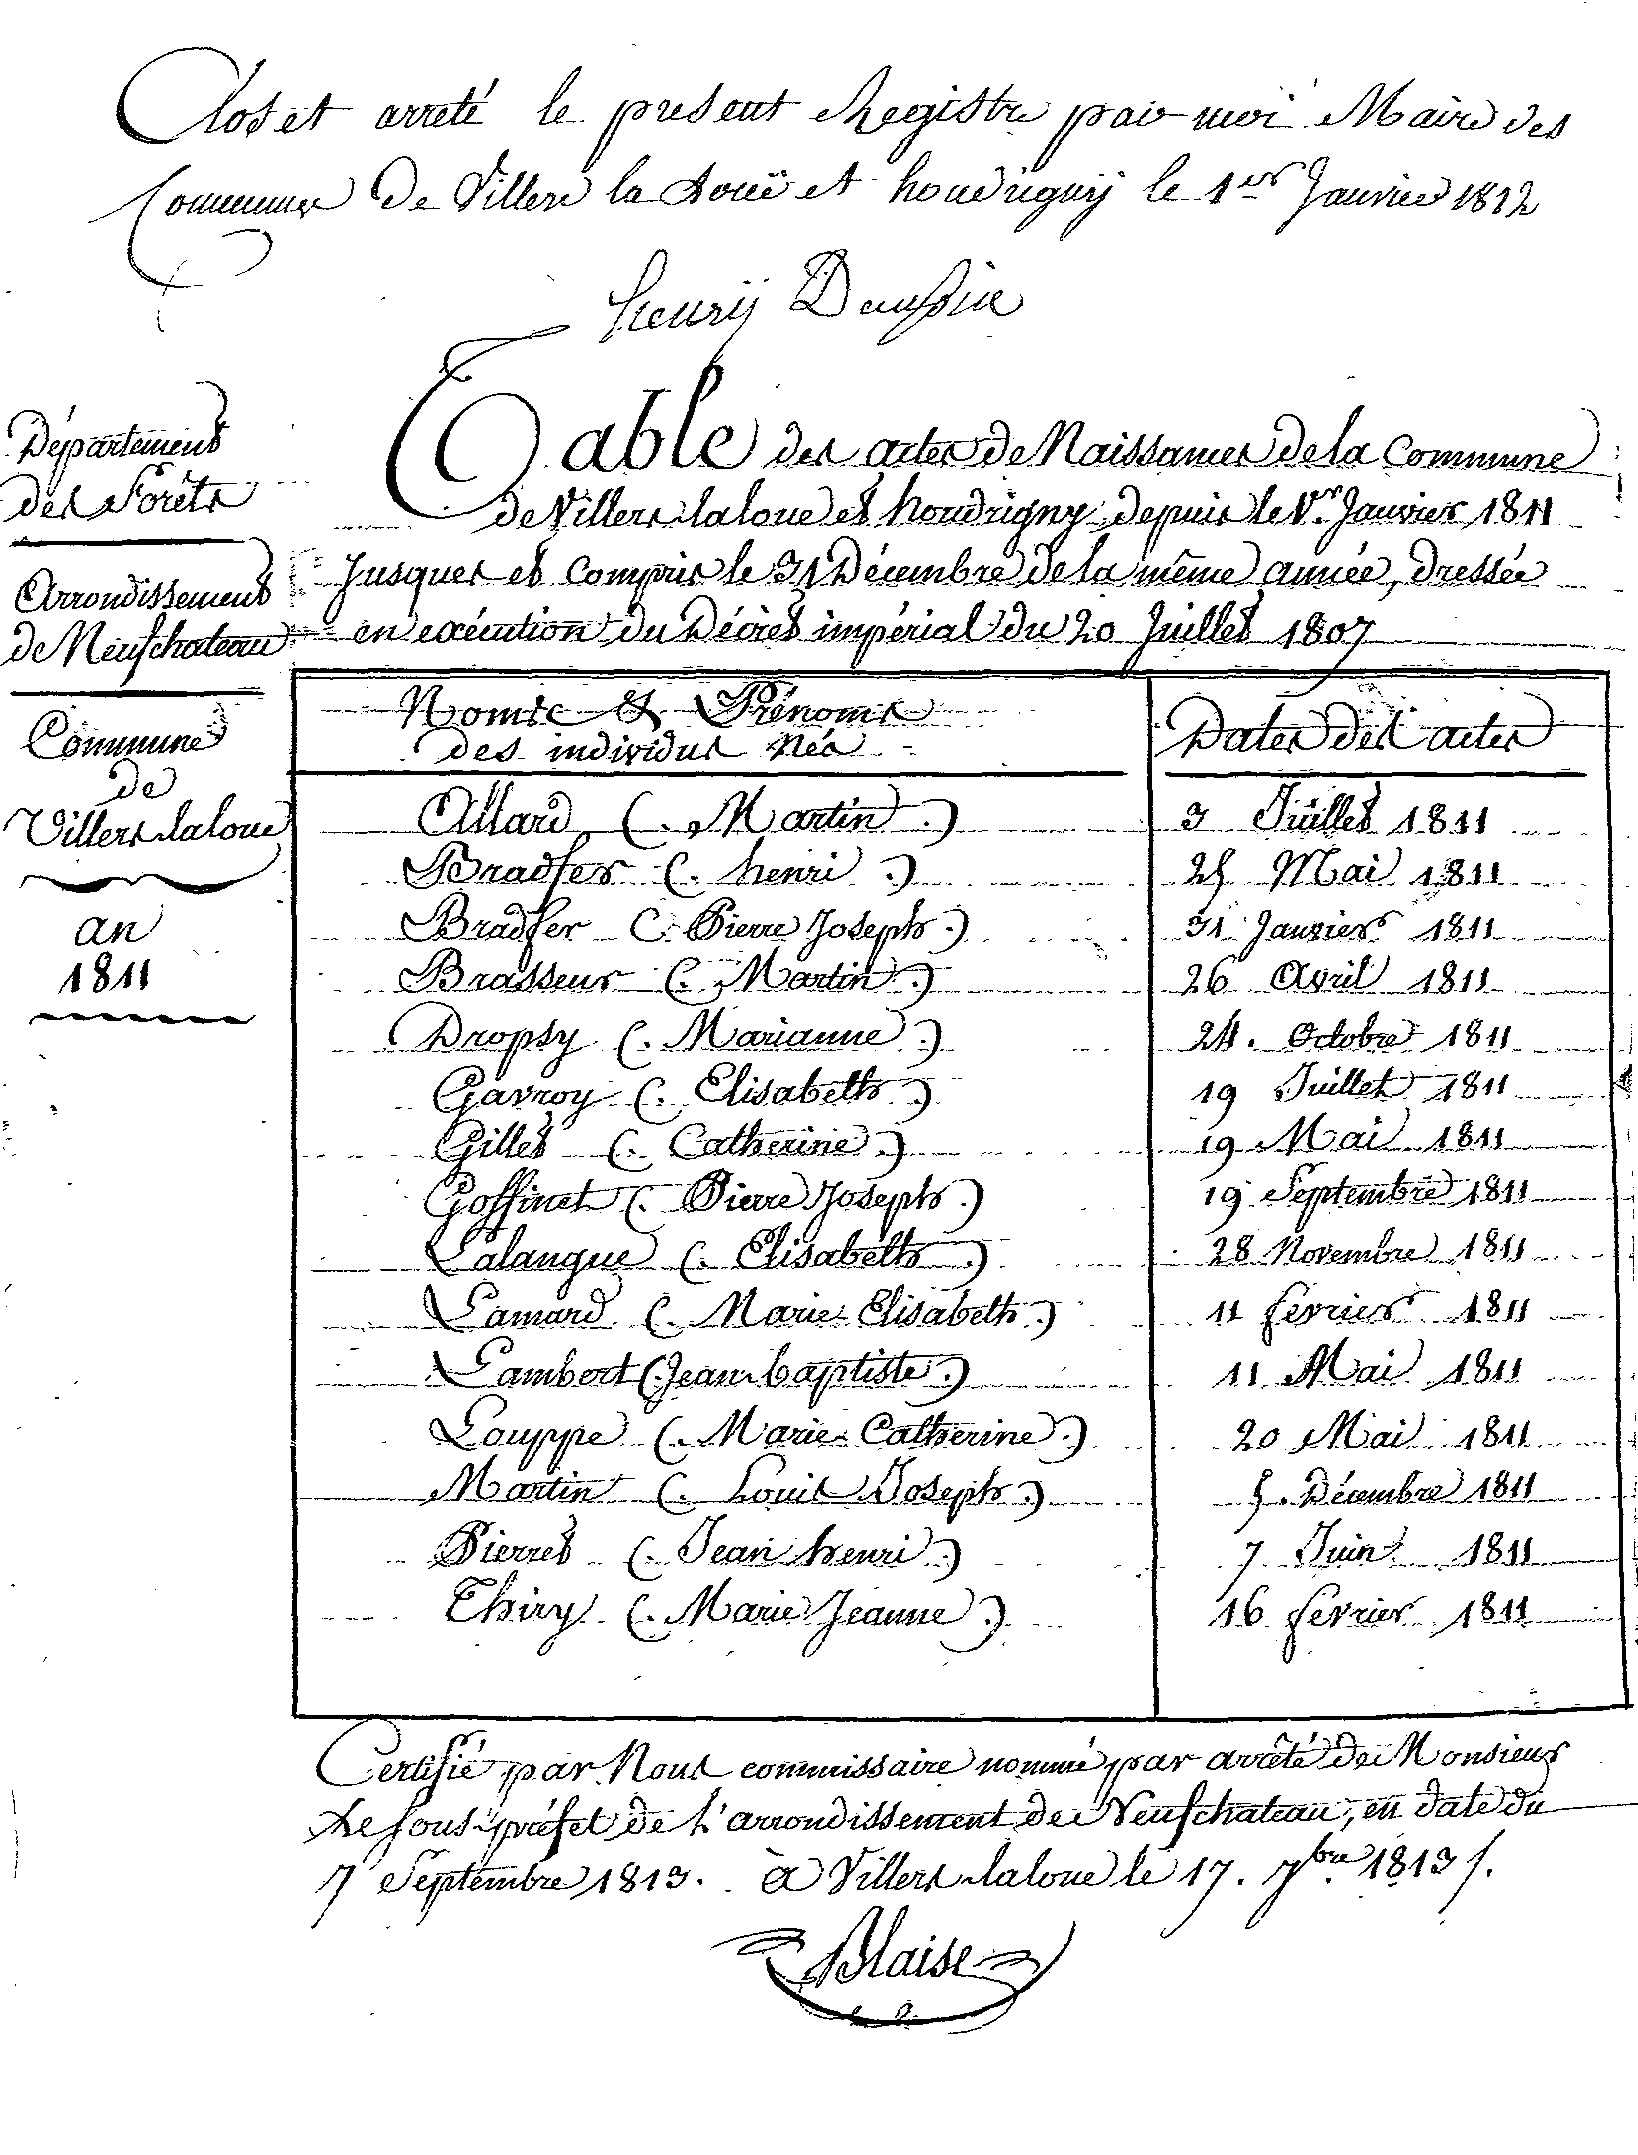 Clos et arreté le present Registre par moi Maire des
Communes de Villers la Loüe et houdrigny le 1er Janvier 1812
henrij
Table des actes de Naissances de la Commune
de Villers laloue et houdrigny depuis le 1er Janvier 1811
Jusques et Compris le 31 Décembre de la même année, dressée
en exécution du Décret impérial du 20 Juillet 1807
Département
des Forêts
Arrondissement
de Neufchateau
Commune
de
Villers laloue
an
1811
Noms & Prénoms
des individus Nés
Dates des actes
Allard (. Martin .) 3 Juillet 1811
Bradfer (. henri .) 25 Mai 1811
Bradfer (. Pierre Joseph .) 31 Janvier 1811
Brasseur (. Martin .) 26 Avril 1811
Dropsy (. Marianne .) 24. Octobre 1811
Gavroy (. Elisabeth .) 19 Juillet 1811
Gilles (. Catherine .) 19 Mai 1811
Goffinet (. Pierre Joseph .) 19 Septembre 1811
Lalangue (. Elisabeth .) 28 Novembre 1811
Lamard (. Marie Elisabeth .) 11 fevrier 1811
Lambert (. Jean baptiste .) 11 Mai 1811
Louppe (. Marie Catherine .) 20 Mai 1811
Martin (. Louis Joseph .) 5. Décembre 1811
Pierret (. Jean henri .) 7 Juin 1811
Thiry (. Marie Jeanne .) 16 fevrier 1811
Certifié par Nous commissaire nommé par arrêté de Monsieur
Le sous-préfet de L'arrondissement de Neufchateau, en date du
7 Septembre 1813. à Villers laloue le 17. 7bre 1813
Blaise